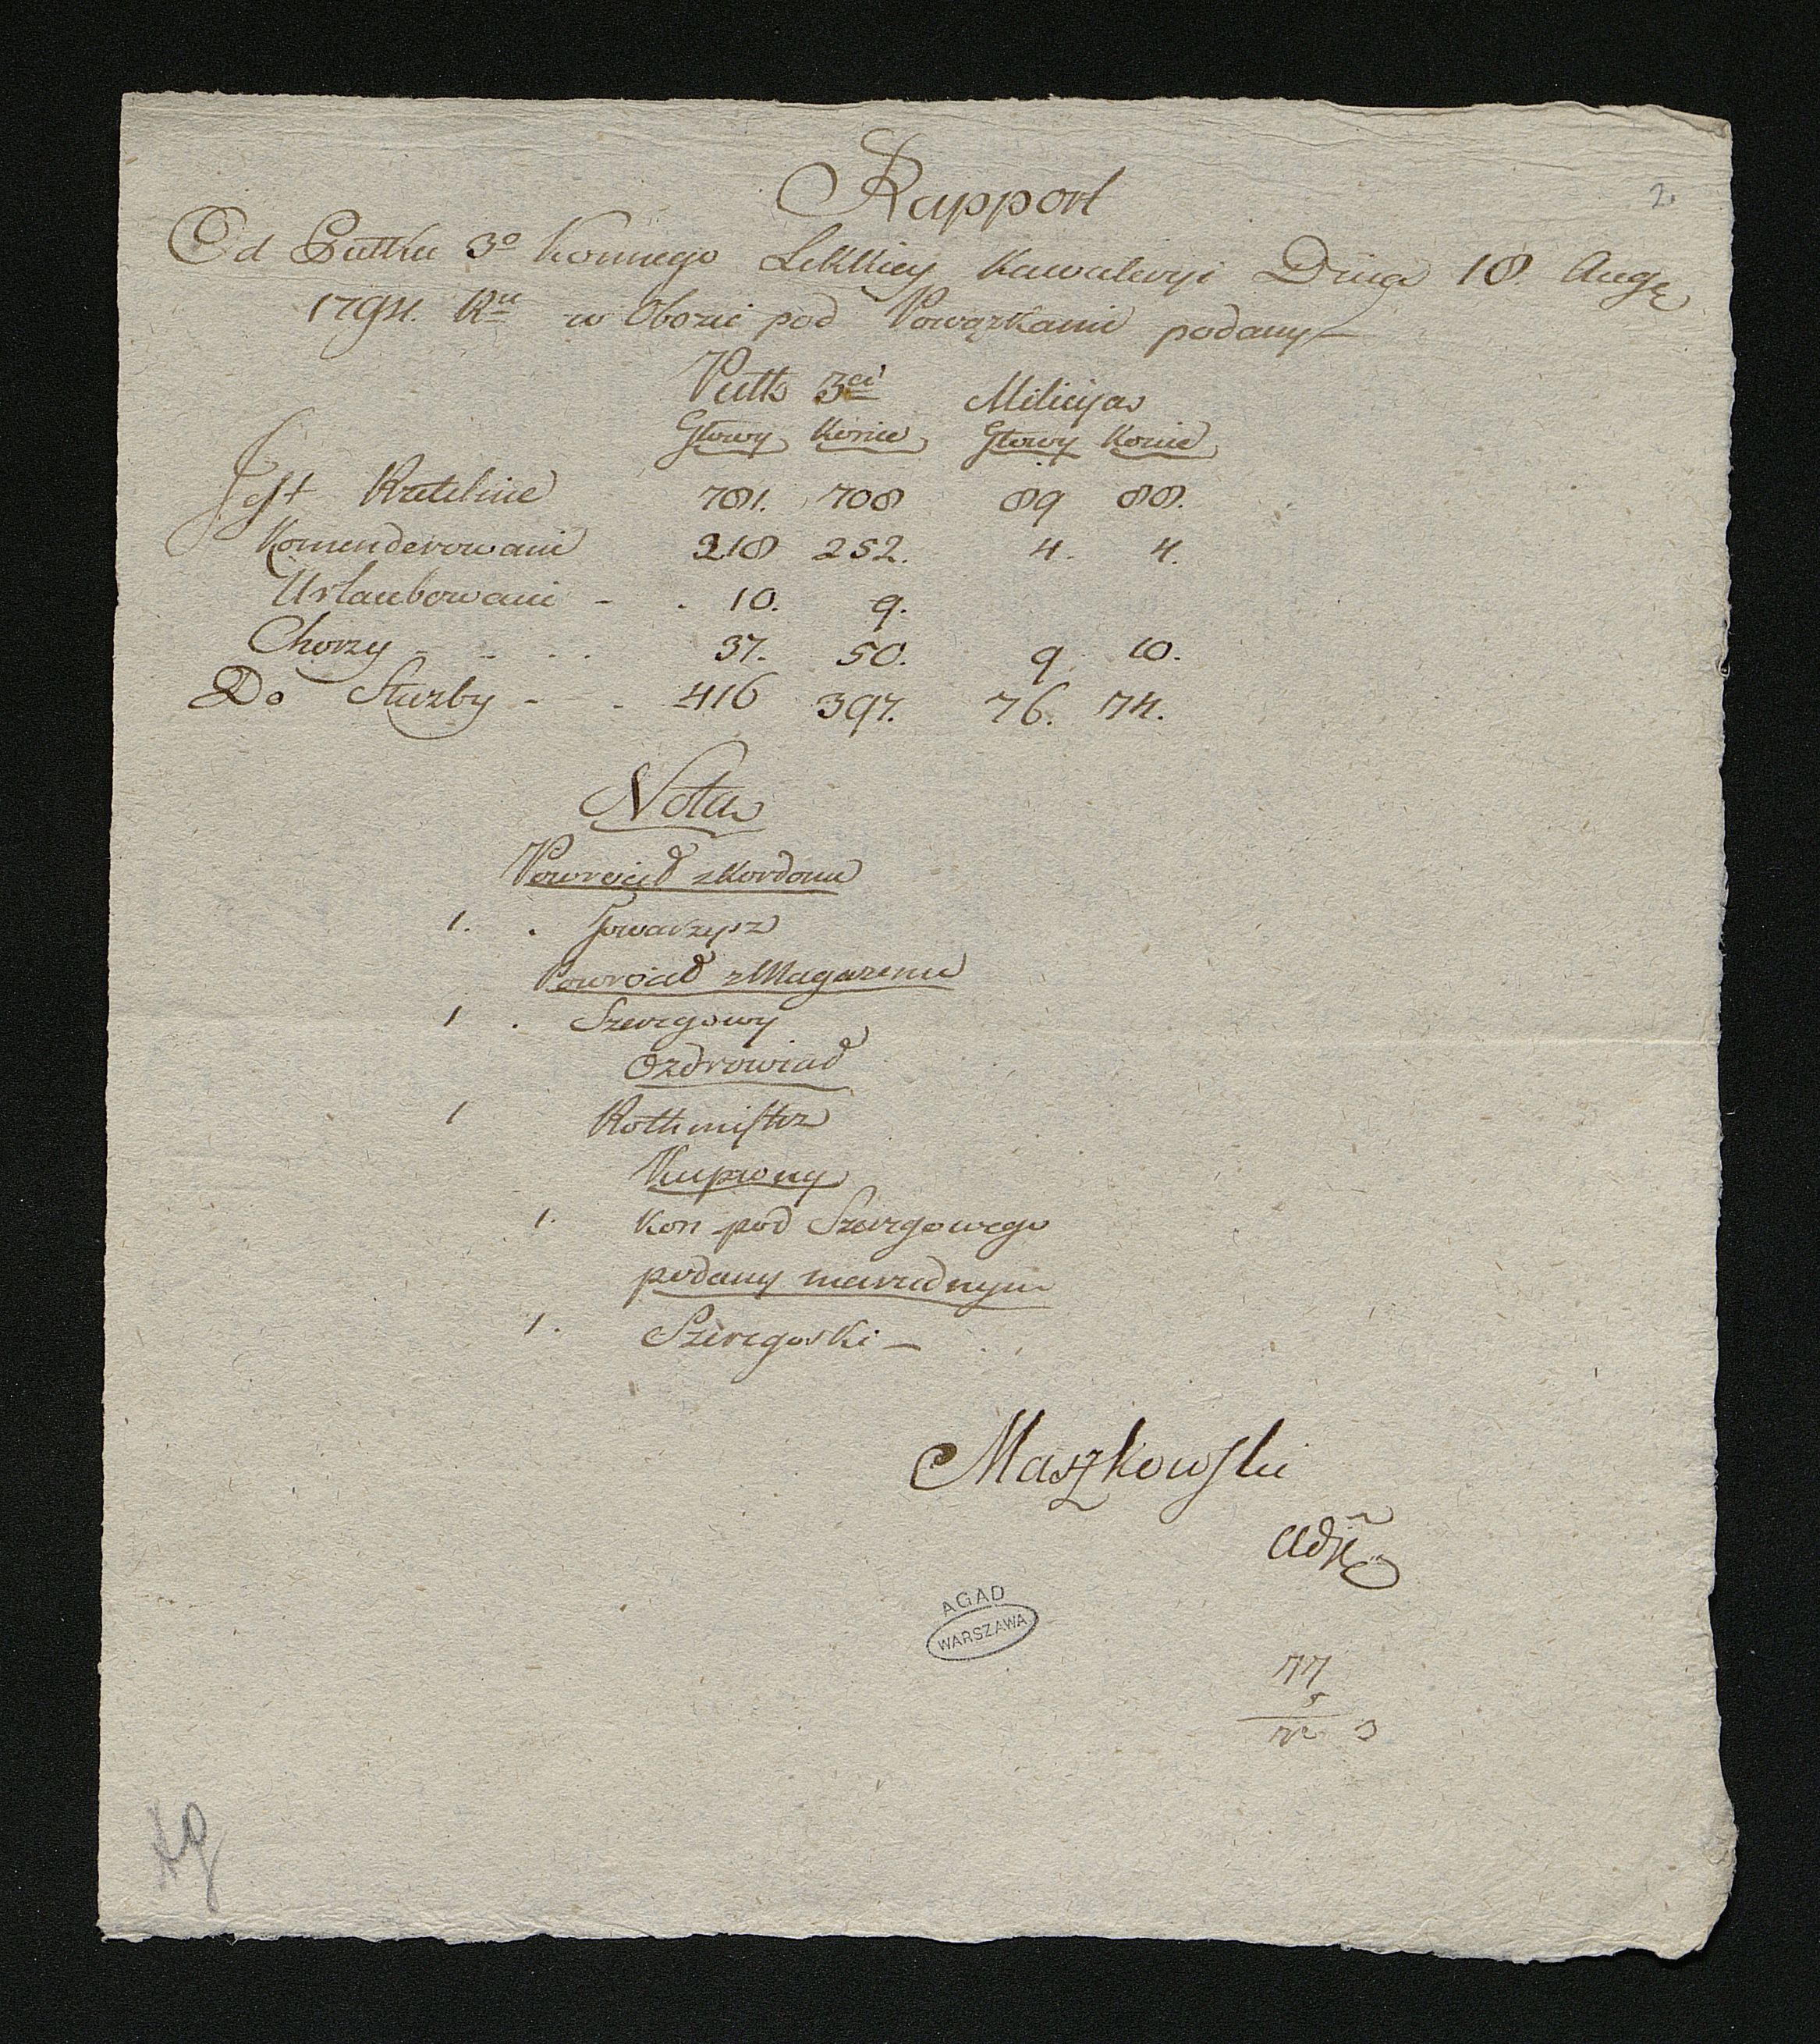 Rapport
2.
Od Pułku 3º Konnego Lekkiey Kawaleryi Dnia 18. Augę
1794. Rᵘ w Obozie pod Powązkami podany
Pułk 3ᶜⁱ Milicyja
Głowy Konie Głowy Konie
Jest Rzetelnie 781. 708 89 88.
Komenderowani 318 252. 4. 4.
Urlaubowani - . 10. 9.
Chorzy - - . . 37. 50. 9. 10.
Do Służby - - 416 397. 76. 74.
Nota
Powrócił z Kordonu
1. . Towarzysz
Powrócił z Magazenu
1 . Szeregowy
Ozdrowiał
1 Rothmistrz
Kupiony
1. Kon pod Szeregowego
podany marudnym
1. Szeregoski -
Maszkowski
Adj
AGAD
WARSZAWA
77
5
72 3